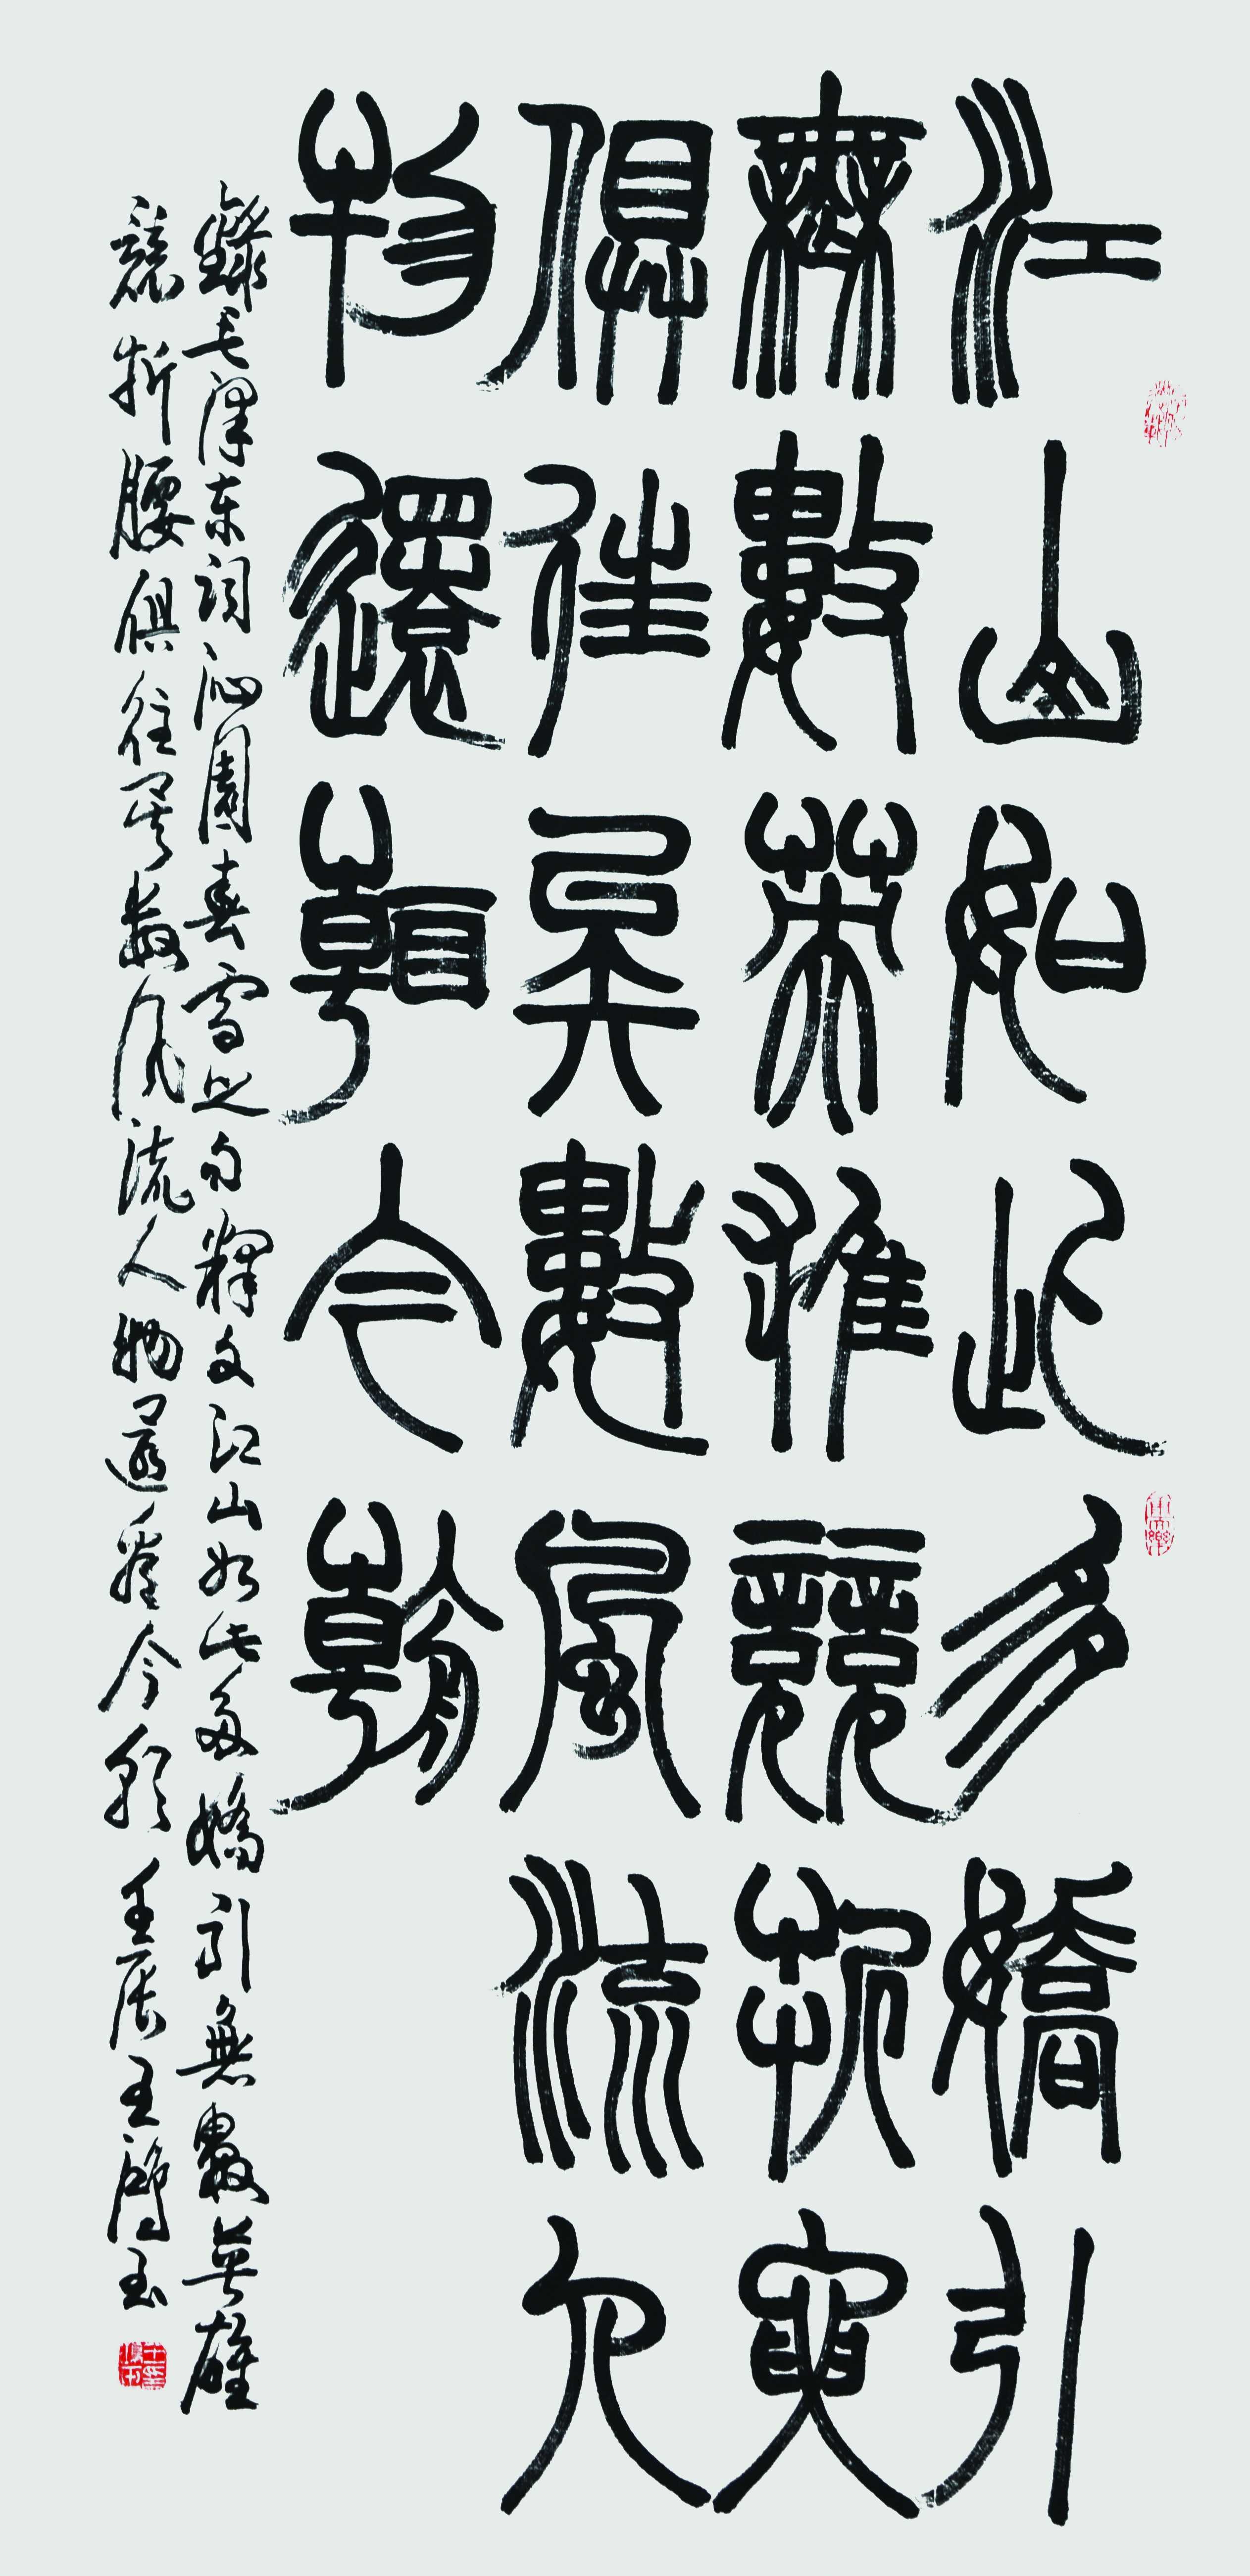 江山如此多嬌引
無數英雄競折腰
俱往矣數風流人
物還看今朝
錄毛澤东詞沁園春雪之句釋文江山如此多嬌引無數英雄
競折腰俱往矣數風流人物還看今朝壬辰王玉